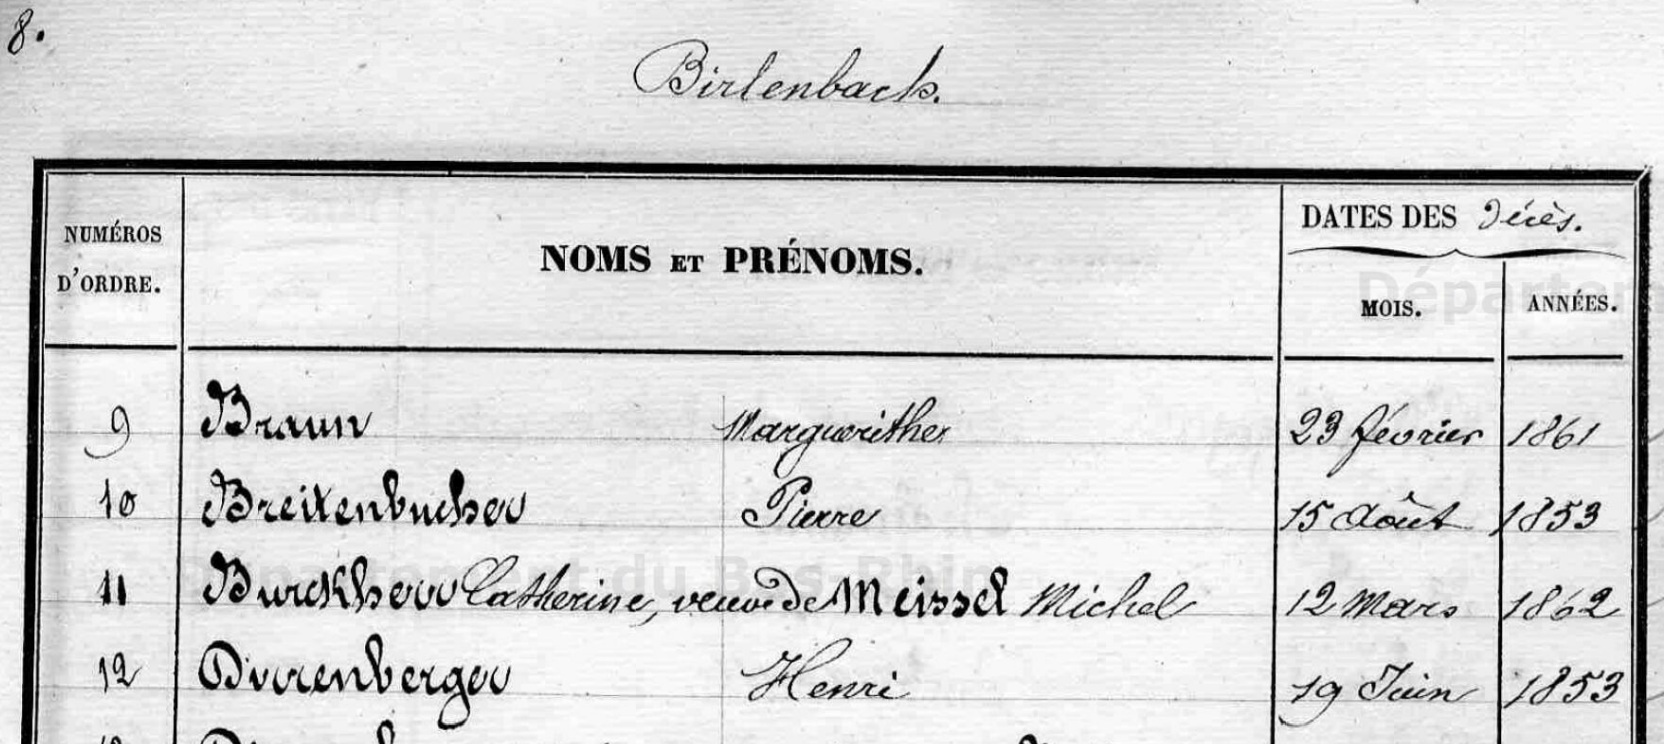 8.
Birlenbach.
NUMÉROS D'ORDRE.
NOMS ET PRÉNOMS.
DATES DES Décès.
MOIS.
ANNÉES.
9 Braun Marguerithe 23 février 1861
10 Breitenbucher Pierre 15 Août 1853
11 Burckherr Catherine, veuve de Meissel Michel 12 Mars 1862
12 Durrenberger Henri 19 Juin 1853
Département du Bas-Rhin